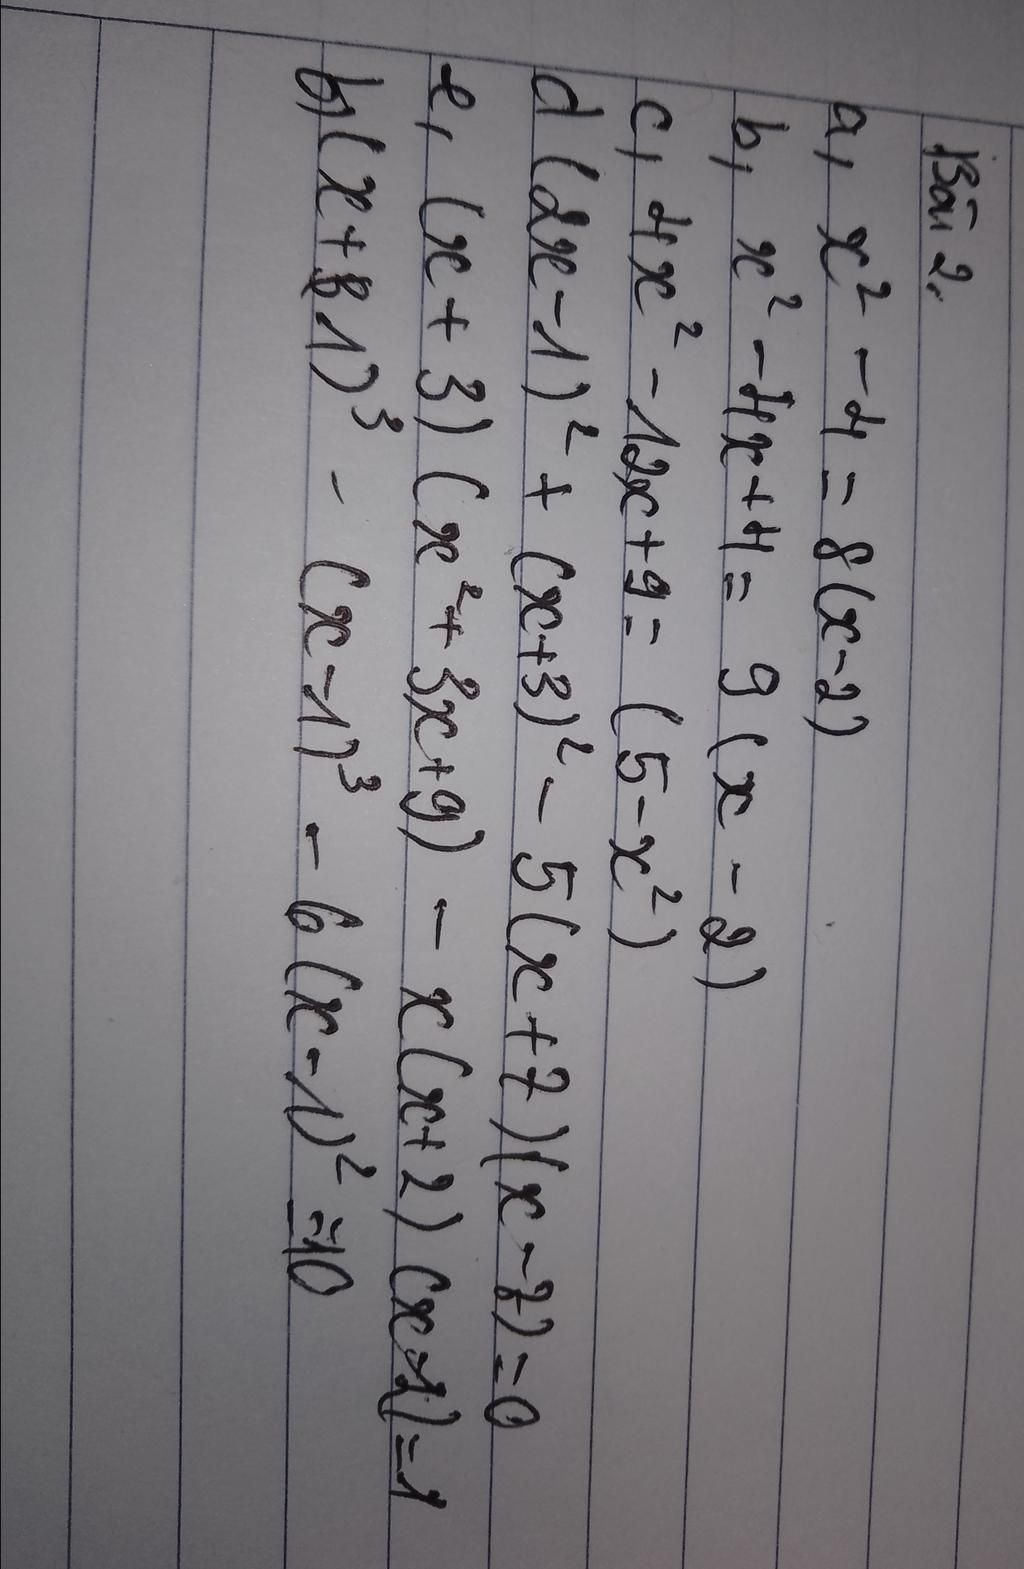 Bài 2.
a, x² - 4 = 8(x-2)
b, x² - 4x+4 = 9(x - 2)
c, 4x² - 12x+9 = (5-x²)
d (2x-1)² + (x+3)² - 5(x+7)(x-7)=0
e, (x+3)(x²+3x+9) - x(x+2)(x-2)=1
b, (x+1)³ - (x-1)³ - 6(x-1)² = 10